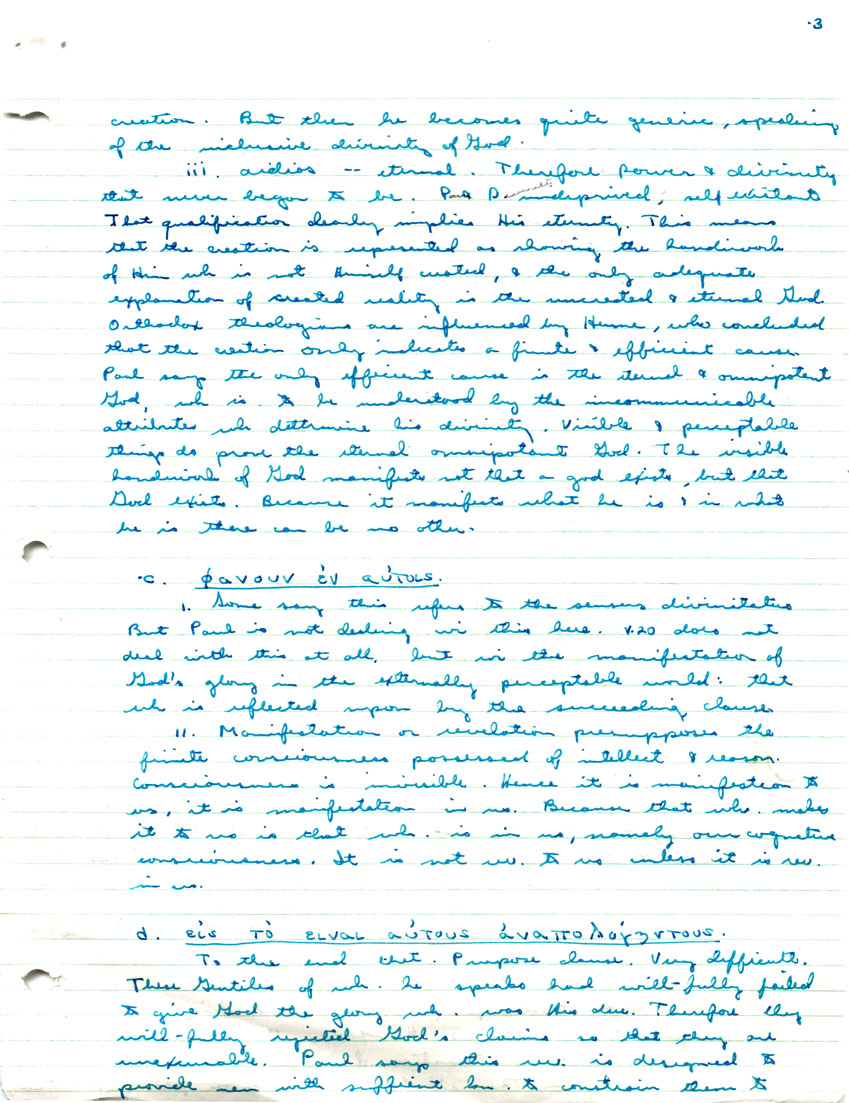 ·3
creation. But then he becomes quite generic, speaking
of the inclusive divinity of God.
iii. aidios -- eternal. Therefore power & divinity
that never began to be. underived; self existent
That qualification clearly implies His eternity. This means
that the creation is represented as showing the handiwork
of Him wh is not Himself created, & the only adequate
explanation of created reality is the uncreated & eternal God.
Orthodox theologians are influenced by Hume, who concluded
that the creation only indicates a finite & efficient cause.
Paul says the only efficient cause is the eternal & omnipotent
God, wh is to be understood by the incommunicable
attributes wh determine his divinity. Visible & perceptable
things do prove the eternal omnipotent God. The visible
handiwork of God manifests not that a god exists, but that
God exists. Because it manifests what he is & in what
he is there can be no other.
·c. φανουν ἐν αὐτοις.
i. Some say this refers to the sensus divinitatis
But Paul is not dealing wi this here. v.20 does not
deal with this at all, but wi the manifestation of
God's glory in the externally perceptable world: that
wh is reflected upon by the succeeding clause.
ii. Manifestation or revelation presupposes the
finite consciousness possessed of intellect & reason.
Consciousness is invisible. Hence it is manifestion to
us, it is manifestation in us. Because that wh. makes
it to us is that wh. is in us, namely our cognative
consciousness. It is not rev. to us unless it is rev.
in us.
d. εἰς τὸ ειναι αὐτους ἀναπολόγηντους.
To the end that. Purpose clause. Very difficult.
These Gentiles of wh. he speaks had will-fully failed
to give God the glory wh. was His due. Therefore they
will-fully rejected God's claims so that they are
inexcusable. Paul says this rev. is designed to
provide men with suffient kn. to constrain them to